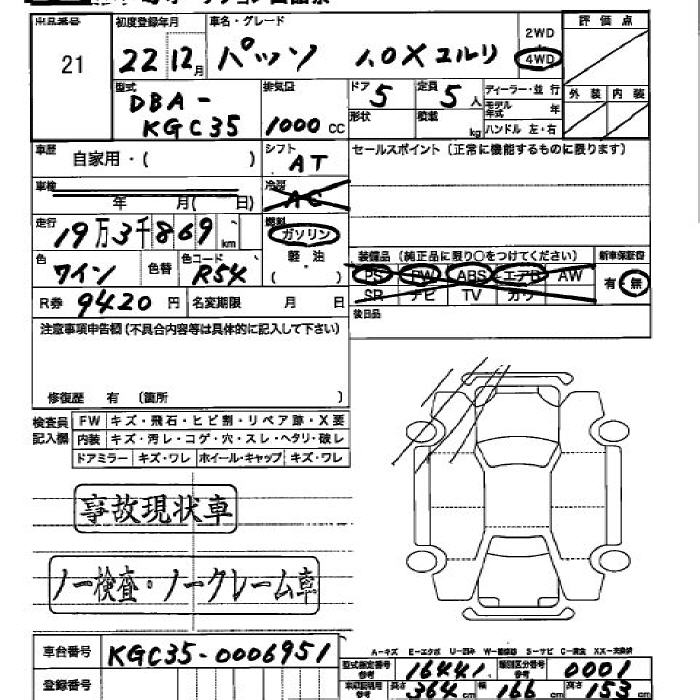 出品番号 初度登録年月 車名・グレード 2WD 評価点
21 22 12月 パッソ 1.0X ユルリ 4WD
型式 排気量 ドア 定員 ディーラー・並行 外装 内装
DBA-KGC35 1000 CC 5 5人 モデル年式 年
形状 積載 kg ハンドル 左・右
車歴 自家用・( ) シフト AT セールスポイント (正常に機能するものに限ります)
車検 年 月( 日) 冷房 AC
走行 19万3千869km 燃料 ガソリン
軽油
( )
色 ワイン 色替 色コード R54
装備品 (純正品に限り○をつけてください) 新車保証書
PS PW ABS エアB AW 有・無
SR ナビ TV カワ
R券 9420円 名変期限 月 日
後日品
注意事項申告欄 (不具合内容等は具体的に記入して下さい)
修復歴 有 (箇所 )
検査員記入欄 FW キズ・飛石・ヒビ割・リペア跡・X要
内装 キズ・汚レ・コゲ・穴・スレ・ヘタリ・破レ
ドアミラー キズ・ワレ ホイール・キャップ キズ・ワレ
事故現状車
ノー検査・ノークレーム車
A-キズ E-エクボ U-凹み W-補修跡 S-サビ C-腐食 XX-交換済
車台番号 KGC35-0006951
型式指定番号参考 16441 類別区分番号参考 0001
登録番号
車庫証明用参考 長さ 364cm 幅 166cm 高さ 153cm